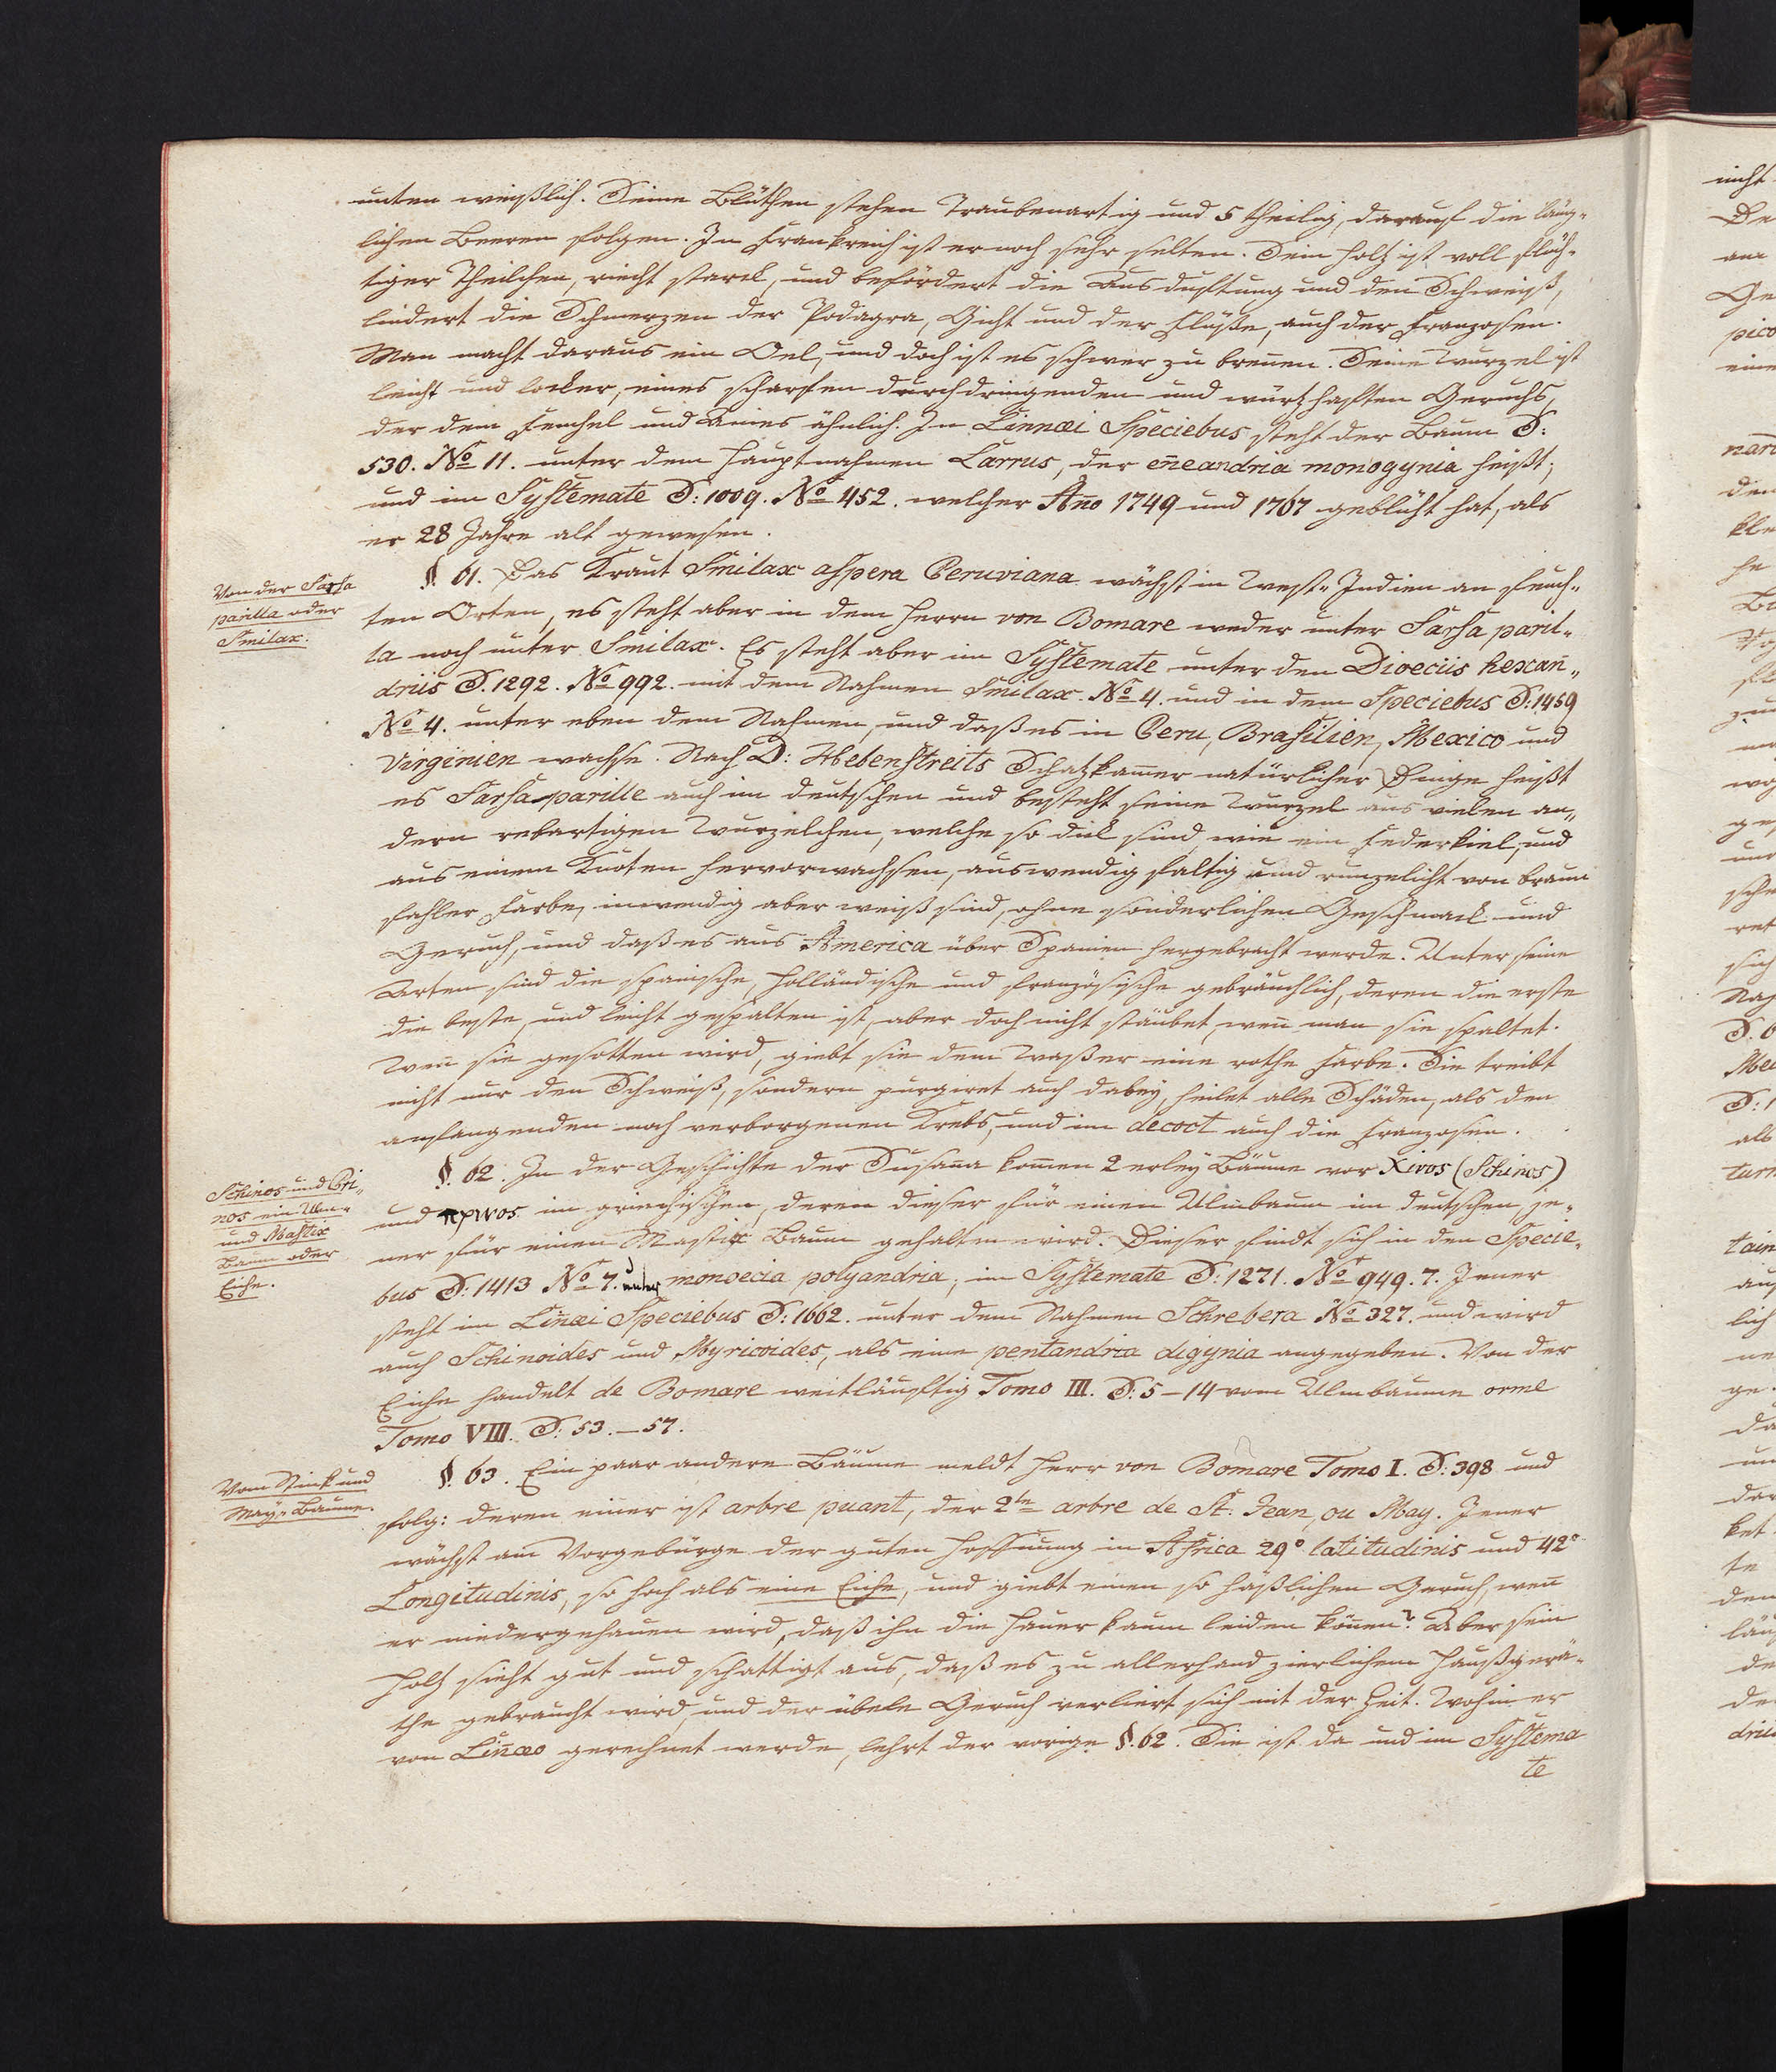 unten weißlich. Seine Blüthen stehen Traubenartig und 5 theilig, darauf die läng-
lichen Beeren folgen. In Frankreich ist er noch sehr selten. Sein Holz ist voll flüch-
tiger Theilchen, riecht starck, und befördert die Ausduftung und den Schweiß,
lindert die Schmerzen der Podagra, Gicht und der Flüße, auch der Franzosen.
Man macht daraus ein Oel, und doch ist es schwer zu breñen. Seine Wurzel ist
leicht und locker, eines scharfen durchdringenden und würtzhaften Geruchs,
der dem Fenchel und Anies ähnlich. In Linnæi Speciebus steht der Baum S:
530. No 11. unter dem Hauptnahmen Larrus, der eñeandria monogynia heißt;
und im Systemate S: 1009. No 452. welcher Año 1749 und 1767 geblüht hat, als
er 28 Jahre alt gewesen.
Von der Sarsa
parilla oder
Smilax.
§. 61. Das Kraut Smilax aspera Peruviana wächst in West-Indien an feuch-
ten Orten, es steht aber in dem Herrn von Bomare weder unter Sarsa paril-
la noch unter Smilax. Es steht aber im Systemate unter den Dioeciis hexañ-
driis S. 1292. No 992. mit dem Nahmen Smilax No 4. und in dem Speciebus S: 1459
No 4. unter eben dem Nahmen, und daß es in Peru, Brasilien, Mexico und
Virginien wachse. Nach D: Hebenstreits Schatzkam̃er natürlicher Dinge heißt
es Sarsaparille auch im deutschen und besteht seine Wurzel aus vielen an-
dern rebartigen Wurzelchen, welche so dick sind, wie ein Federkiel, und
aus einem Knoten hervorwachsen, auswendig faltig und runzelicht von braun
fahler Farbe, inwendig aber weiß sind, ohne sonderlichen Geschmack und
Geruch, und daß es aus America über Spanien hergebracht werde. Unter seine
Arten sind die spanische, holländische und französische gebräuchlich, deren die erste
die beste, und leicht gespalten ist, aber doch nicht stäubet, weñ man sie spaltet.
Weñ sie gesotten wird, giebt sie dem Waßer eine rothe Farbe. Sie treibt
nicht nur den Schweiß, sondern purgiret auch dabey, heilet alle Schäden, als den
anfangenden noch verborgenen Krebs, und im decoct auch die Franzosen.
Schinos und Pri-
nos ein Ulm-
und Mastix
Baum oder
Eiche.
§. 62. In der Geschichte der Susaña kom̃en 2erley Bäume vor Xivos (Schinos)
und πρινος im griechischen, deren dieser für einen Ulmbaum im deutschen, je-
ner für einen Mastix Baum gehalten wird. Dieser findt sich in den Specie-
bus S: 1413 No 7. unter monoecia polyandria; im Systemate S: 1271. No 949. 7. Jener
steht im Liñæi Speciebus S: 1662. unter dem Nahmen Schrebera No 327. und wird
auch Schinoides und Myricoides, als eine pentandria digynia angegeben. Von der
Eiche handelt de Bomare weitläuftig Tomo III. S: 5-14 vom Ulmbaume orme
Tomo VIII. S: 53.-57.
Vom Stink und
May-Baume.
§. 63. Ein paar andere Bäume meldt Herr von Bomare Tomo I. S: 398 und
folg: deren einer ist arbre puant, der 2te arbre de St. Jean, ou May. Jener
wächst am Vorgebürge der guten Hoffnung in Africa 29° latitudinis und 42°
Longitudinis, so hoch als eine Eiche, und giebt einen so häßlichen Geruch, weñ
er niedergehauen wird, daß ihn die Hauer kaum leiden köñen. Aber sein
Holz sieht gut und schattigt aus, daß es zu allerhand zierlichem Haußgerä-
the gebraucht wird, und der übele Geruch verliert sich mit der Zeit. Wohin er
von Liñæo gerechnet werde, lehrt der vorige §. 62. Sie ist da und im Systema
te